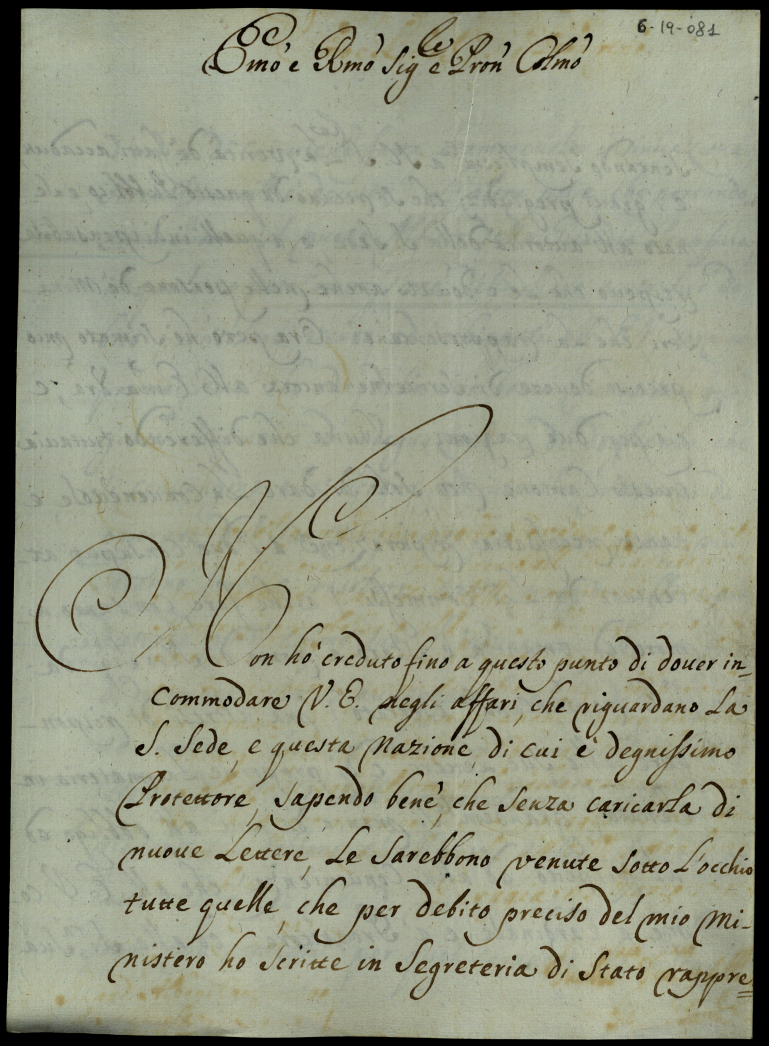 6-19-081
Emo e Rmo Sig.re e Pron Colmo
Non ho creduto fino a questo punto di douer in=
commodare V. E. negli affari, che riguardano La
S. Sede, e questa Nazione, di cui è degnissimo
Protettore, sapendo bene, che senza caricarla di
nuoue Lettere, Le sarebbono venute sotto L'occhio
tutte quelle, che per debito preciso del mio Mi-
nistero ho scritte in Segreteria di Stato rappre=